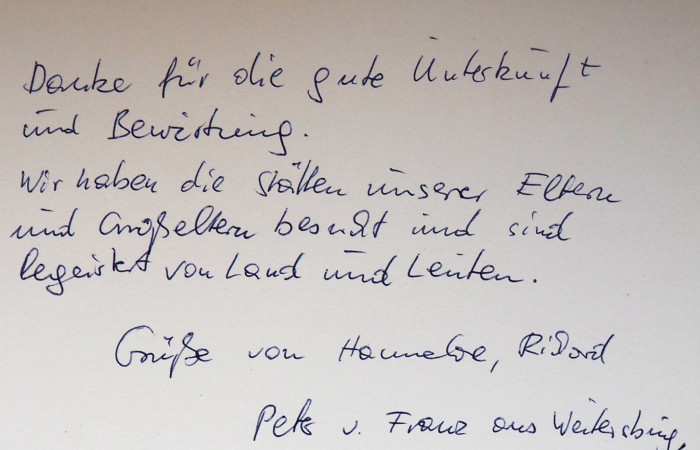 Danke für die gute Unterkunft
und Bewirtung.
Wir haben die Stätten unserer Eltern
und Großeltern besucht und sind
begeistert von Land und Leuten.
Grüße von Hannelore, Richard
Peter u. Franz aus